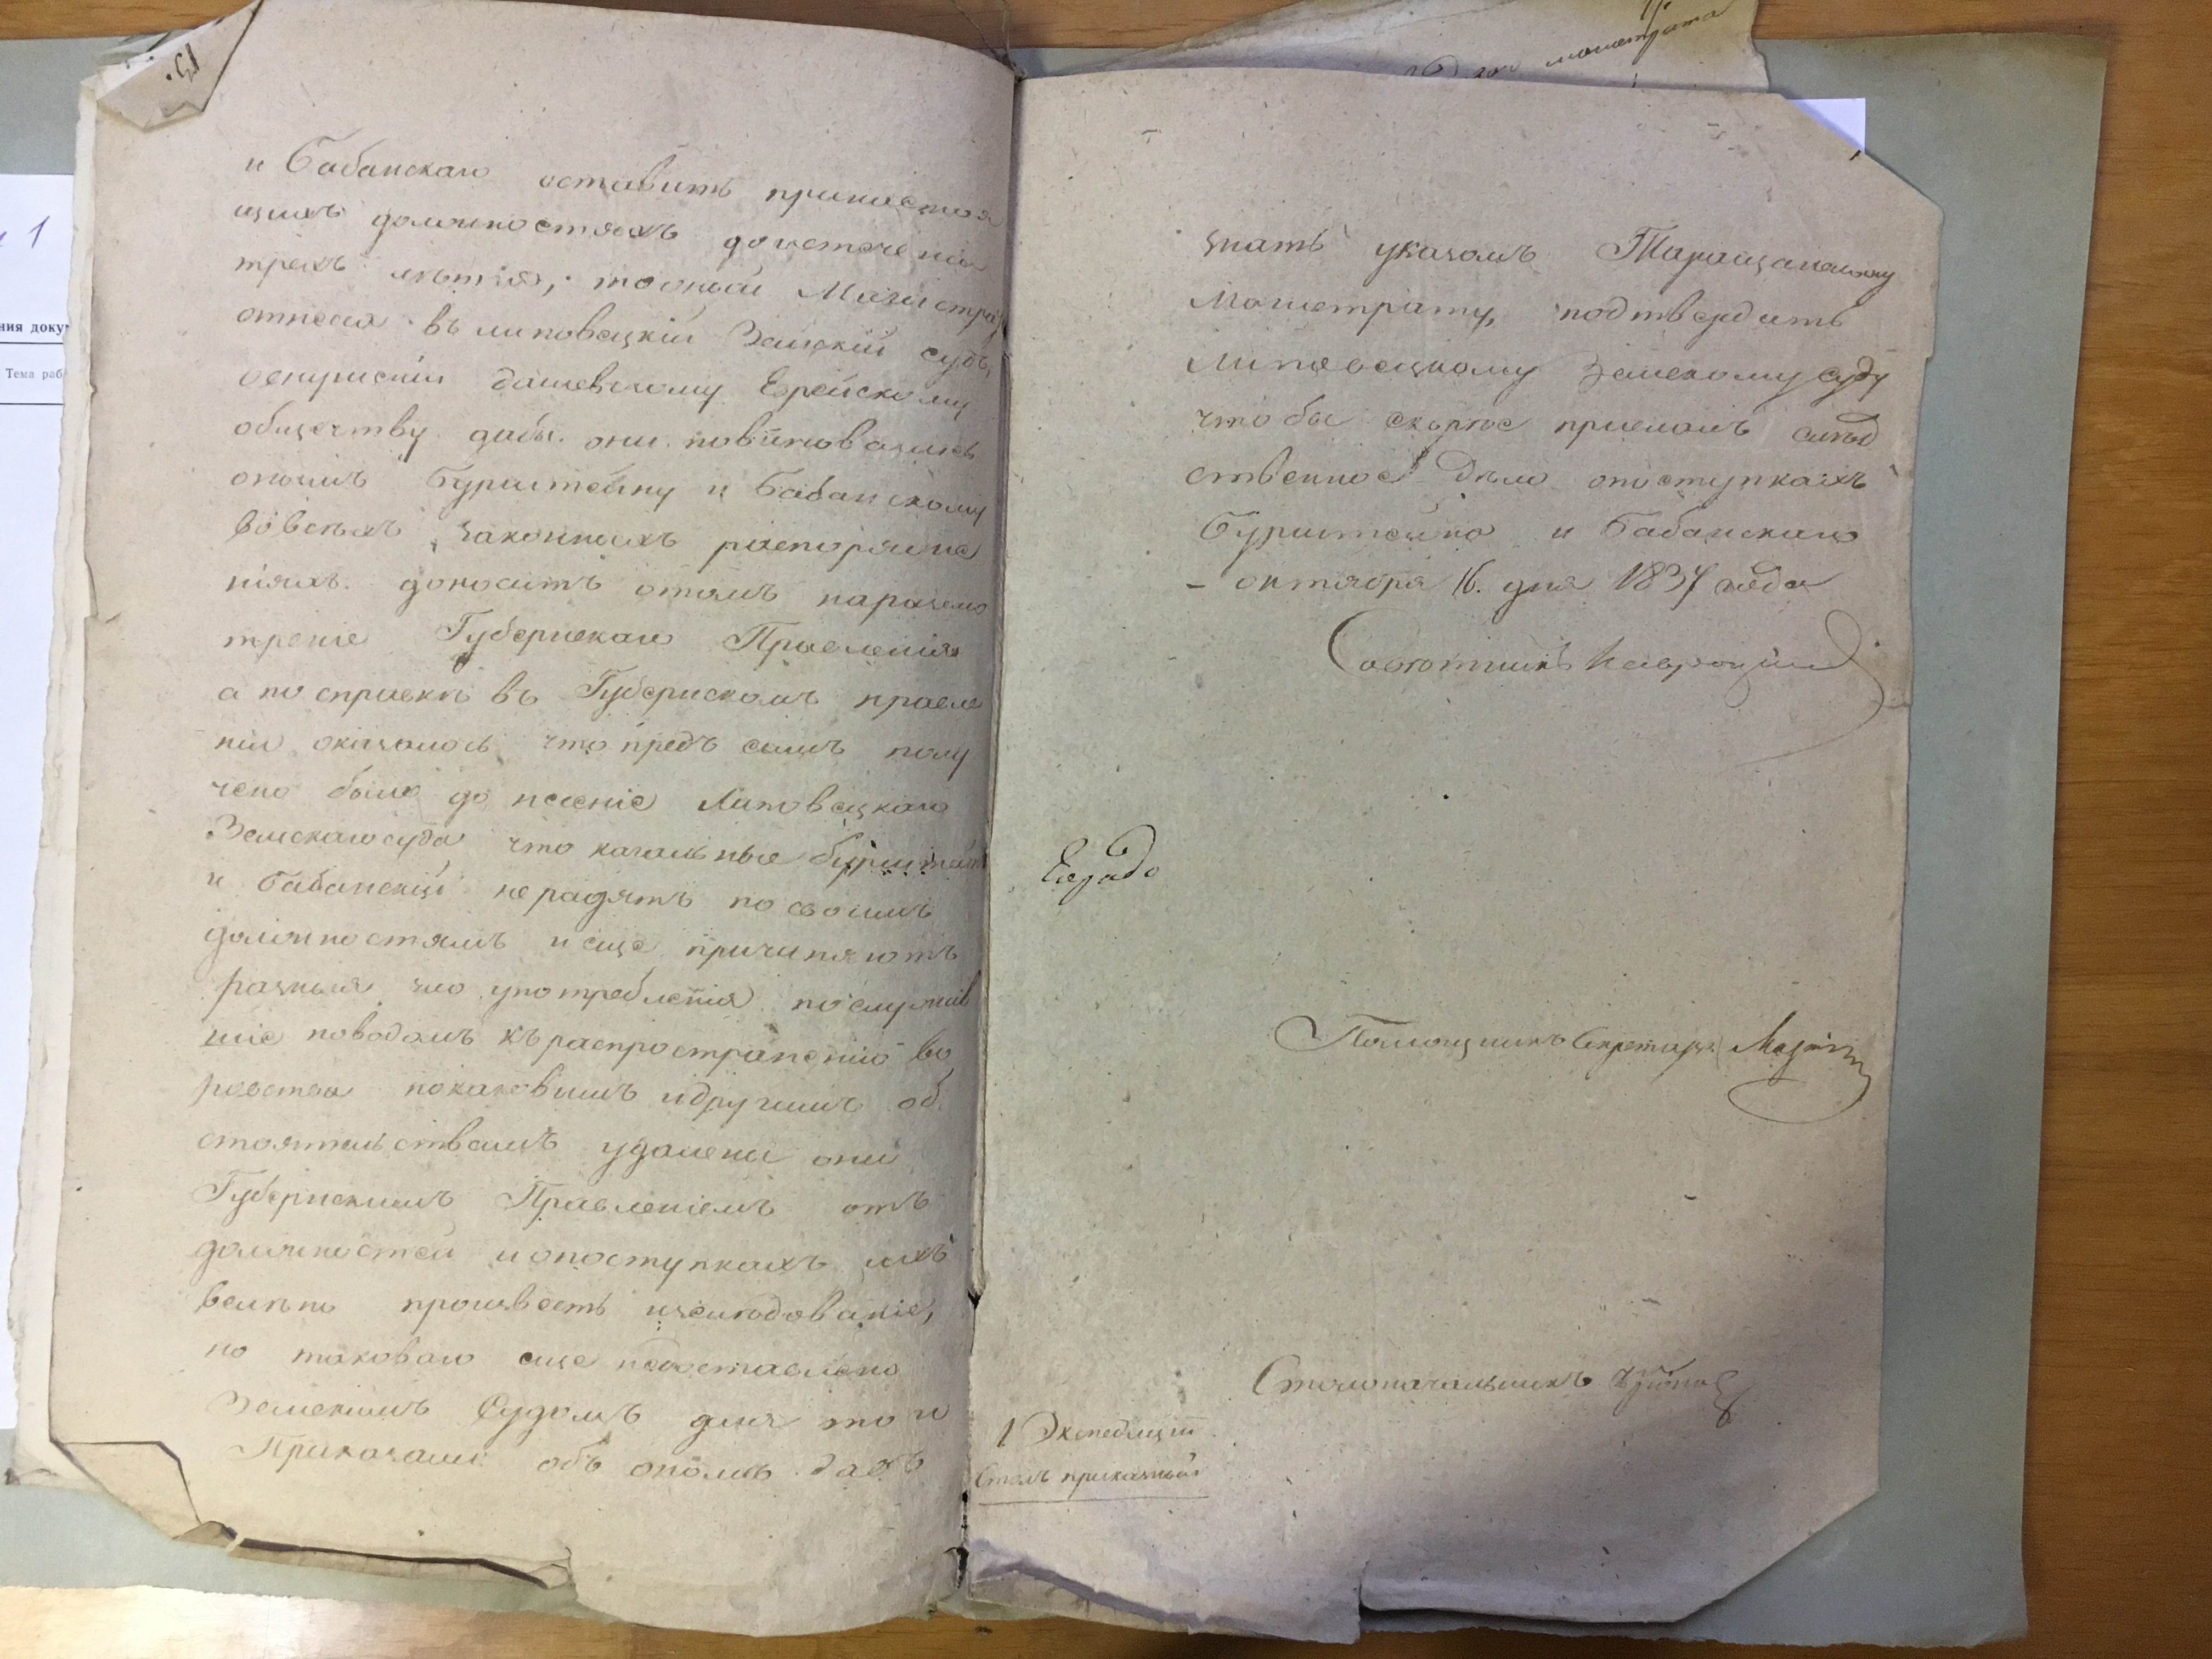 15.
и Бабанскаго оставить принастоя
щихъ должностяхъ доистеченія
трехъ лѣтія, тотный Магистра
отнесся въ липовецкій Земскій судъ,
овнушеніи дашевскому Еврейскому
обществу дабы они повиновались
онымъ Бурштейну и Бабанскому
вовсѣхъ законныхъ распоряже
ніяхъ. доноситъ отомъ наразсмо
треніе Губернскаго Правленія
а по справкѣ въ Губернскомъ правле
ніи оказалось что предъ симъ полу
чено было до несеніе Липовецкаго
Земскаго суда что кагальные Бурштейнъ
и Бабанскій не радятъ по своимъ
должностямъ и еще причиняютъ
разныя зло употребленія послужив
шіе поводомъ къ распространенію во
ровства покаковымъ идругимъ об
стоятельствамъ удалены они
Губернскимъ Правленіемъ отъ
должностей и опоступкахъ ихъ
велѣно произвесть изслѣдованіе,
но таковаго еще недоставлено
Земскимъ Судомъ для того
Приказали: объ ономъ дать
знать указомъ Таращанскому
Магистрату, подтвердить
Липовецкому Земскому суду
чтобы скорѣе прислалъ слѣд
ственное дѣло опоступкахъ
Бурштейна и Бабанскаго
– октября 16. дня 1837 года
Совѣтникъ
Помощникъ Секретаря
Столоначальникъ
1 Экспедиціи
Столъ приказный
ния доку
Тема раб
1
магистрата